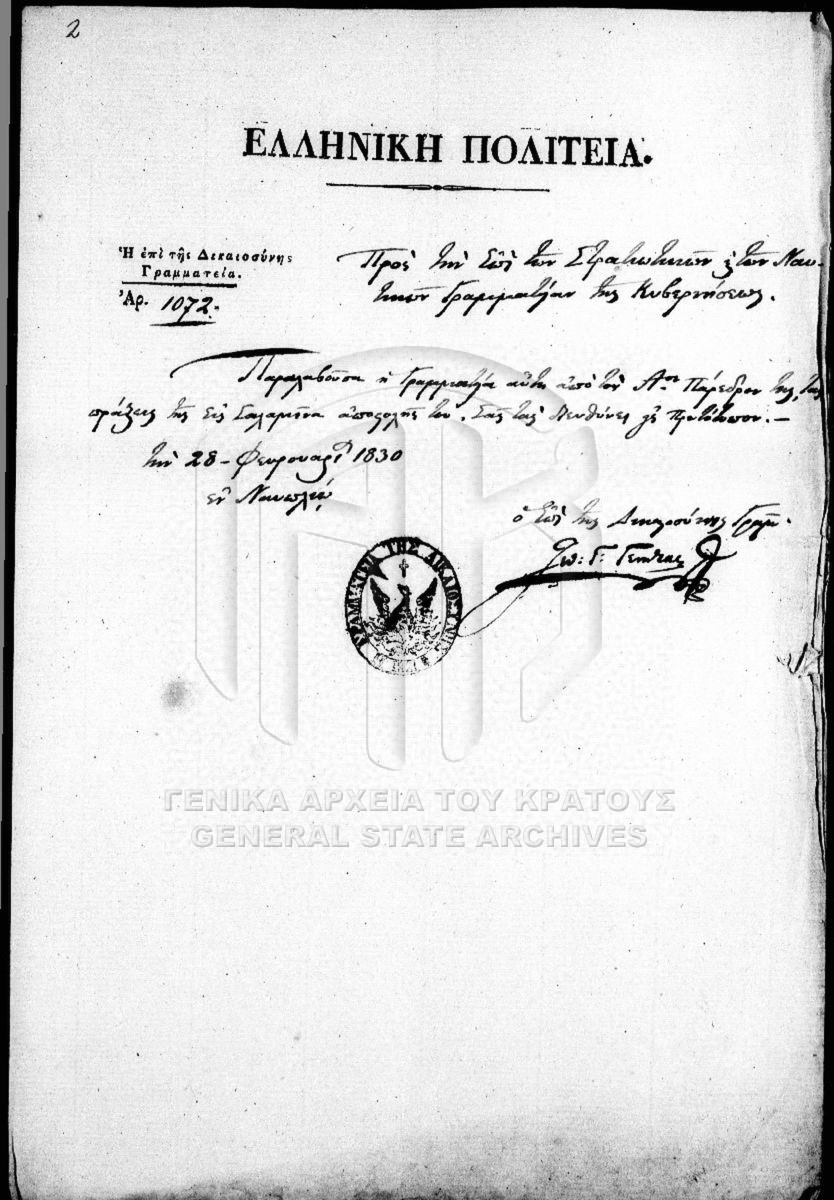 2
ΕΛΛΗΝΙΚΗ ΠΟΛΙΤΕΙΑ.
Ἡ ἐπὶ τῆς Δικαιοσύνης
Γραμματεία.
Ἀρ. 1072.
Πρὸς τὴν ἐπὶ τῶν Στρατιωτικῶν & τῶν Ναυ-
τικῶν Γραμματείαν τῆς Κυβερνήσεως.
Παραλαβοῦσα ἡ Γραμματεία αὕτη ἀπὸ τὸν Πάρεδρον της, τὰς
πράξεις τῆς εἰς Σαλαμῖνα ἀποστολῆς του, Σᾶς τὰς διευθύνει πρωτότυπον.—
τὴν 28 - Φευρουαρ. 1830
ἐν Ναυπλίῳ
ὁ ἐπὶ τῆς Δικαιοσύνης Γραμμ.
ΓΡΑΜΜΑΤΕΙΑ ΤΗΣ ΔΙΚΑΙΟΣΥΝΗΣ
ΓΕΝΙΚΑ ΑΡΧΕΙΑ ΤΟΥ ΚΡΑΤΟΥΣ
GENERAL STATE ARCHIVES